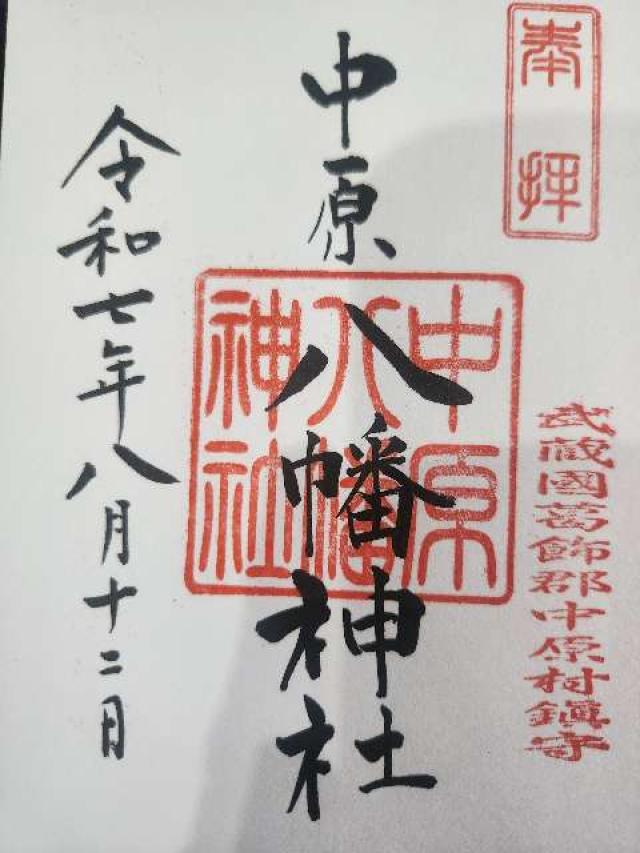 奉拝
武蔵國葛飾郡中原村鎮守
中原八幡神社
中原
八幡
神社
令和七年八月十二日